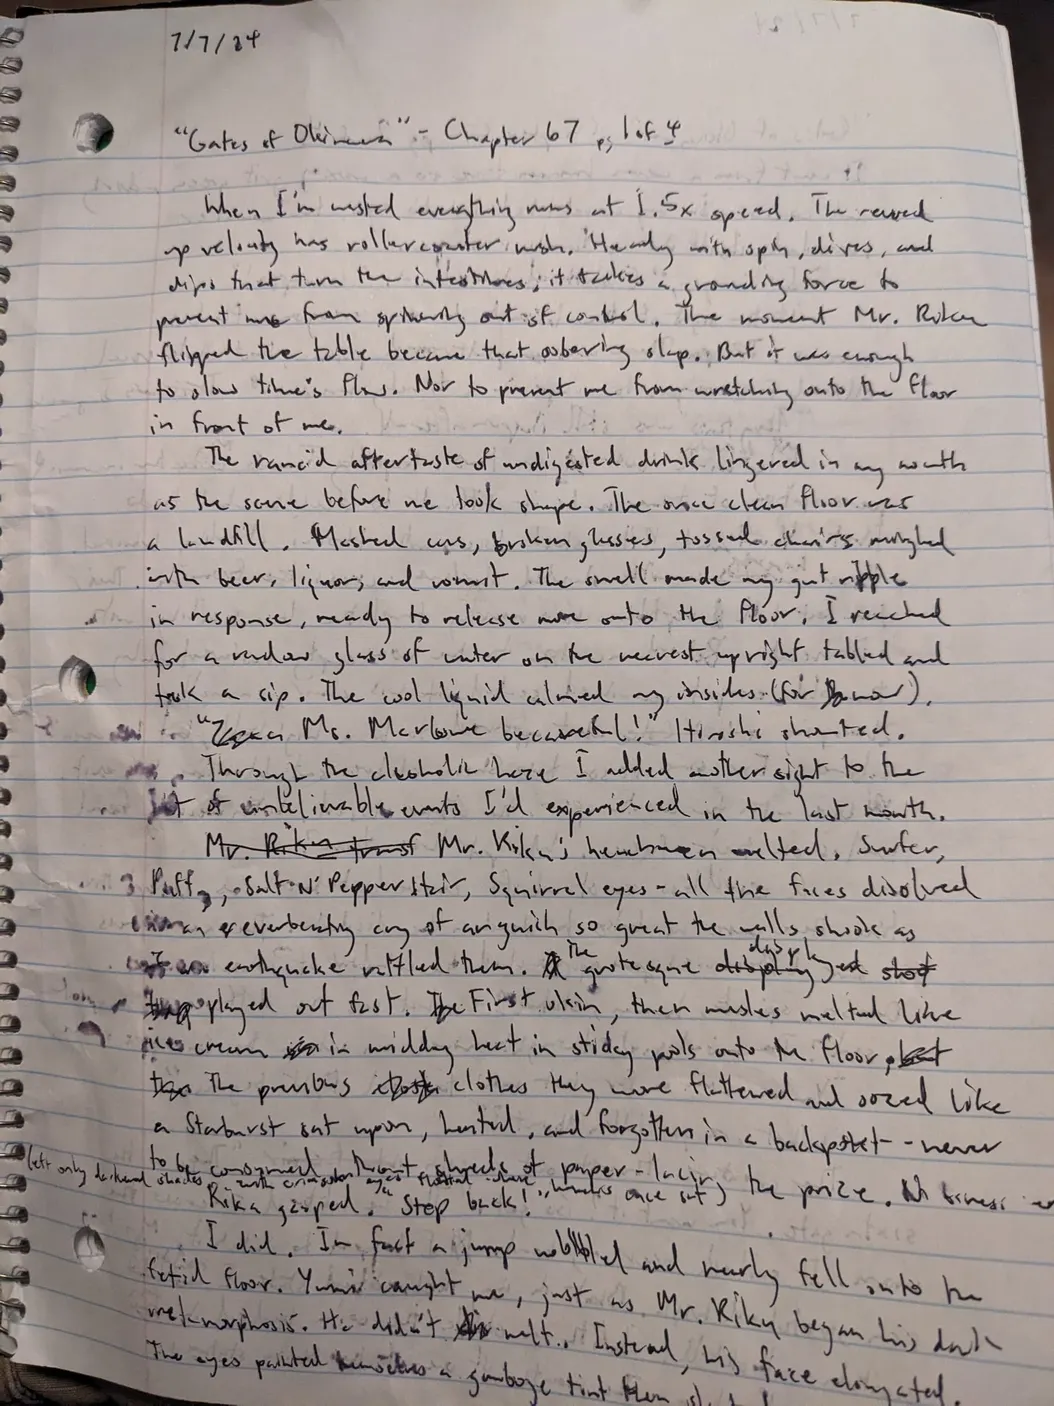 7/7/24
"Gates of Okinawa" - Chapter 67 p, 1 of 4
When I'm wasted everything runs at 1.5x speed. The revved
up velocity has rollercoaster rush. Heady with spin, dives, and
dips that turn the intestines; it takes a grounding force to
prevent me from spinning out of control. The moment Mr. Riku
flipped the table became that sobering slap. But it was enough
to slow time's flow. Nor to prevent me from wretching onto the floor
in front of me.
The rancid aftertaste of undigested drink lingered in my mouth
as the scene before me took shape. The once clean floor was
a landfill. Mashed cans, broken glasses, tossed chairs mingled
with beer, liquor, and vomit. The smell made my gut ripple
in response, ready to release more onto the floor. I reached
for a random glass of water on the nearest upright tabled and
took a sip. The cool liquid calmed my insides (for now).
" Ms. Marlowe be careful!" Hiroshi shouted.
Through the alcoholic haze I added another sight to the
list of unbelievable events I'd experienced in the last month.
Mr. Riku transf Mr. Riku's henchmen melted. Surfer,
Puffy, Salt N' Pepper Hair, Squirrel eyes - all the faces disolved
in a reverberating cry of anguish so great the walls shook as
earthquake rattled them. The grotesque display
played out fast. First skin, then muscles melted like
ice cream in midday heat in sticky pools onto the floor,
The previous clothes they wore flattened and oozed like
a Starburst sat upon, heated, and forgotten in a backpocket - never
to be consumed. shreds of paper-lacing the prize.
left only darkened shades with crimson eyes floated where heads once sat,
Rika gasped. "Step back!"
I did. In fact a jump wobbled and nearly fell onto the
fetid floor. Yumi caught me, just as Mr. Riku began his dark
metamorphosis. He didn't melt. Instead, his face elongated.
The eyes painted themselves a gamboge tint then